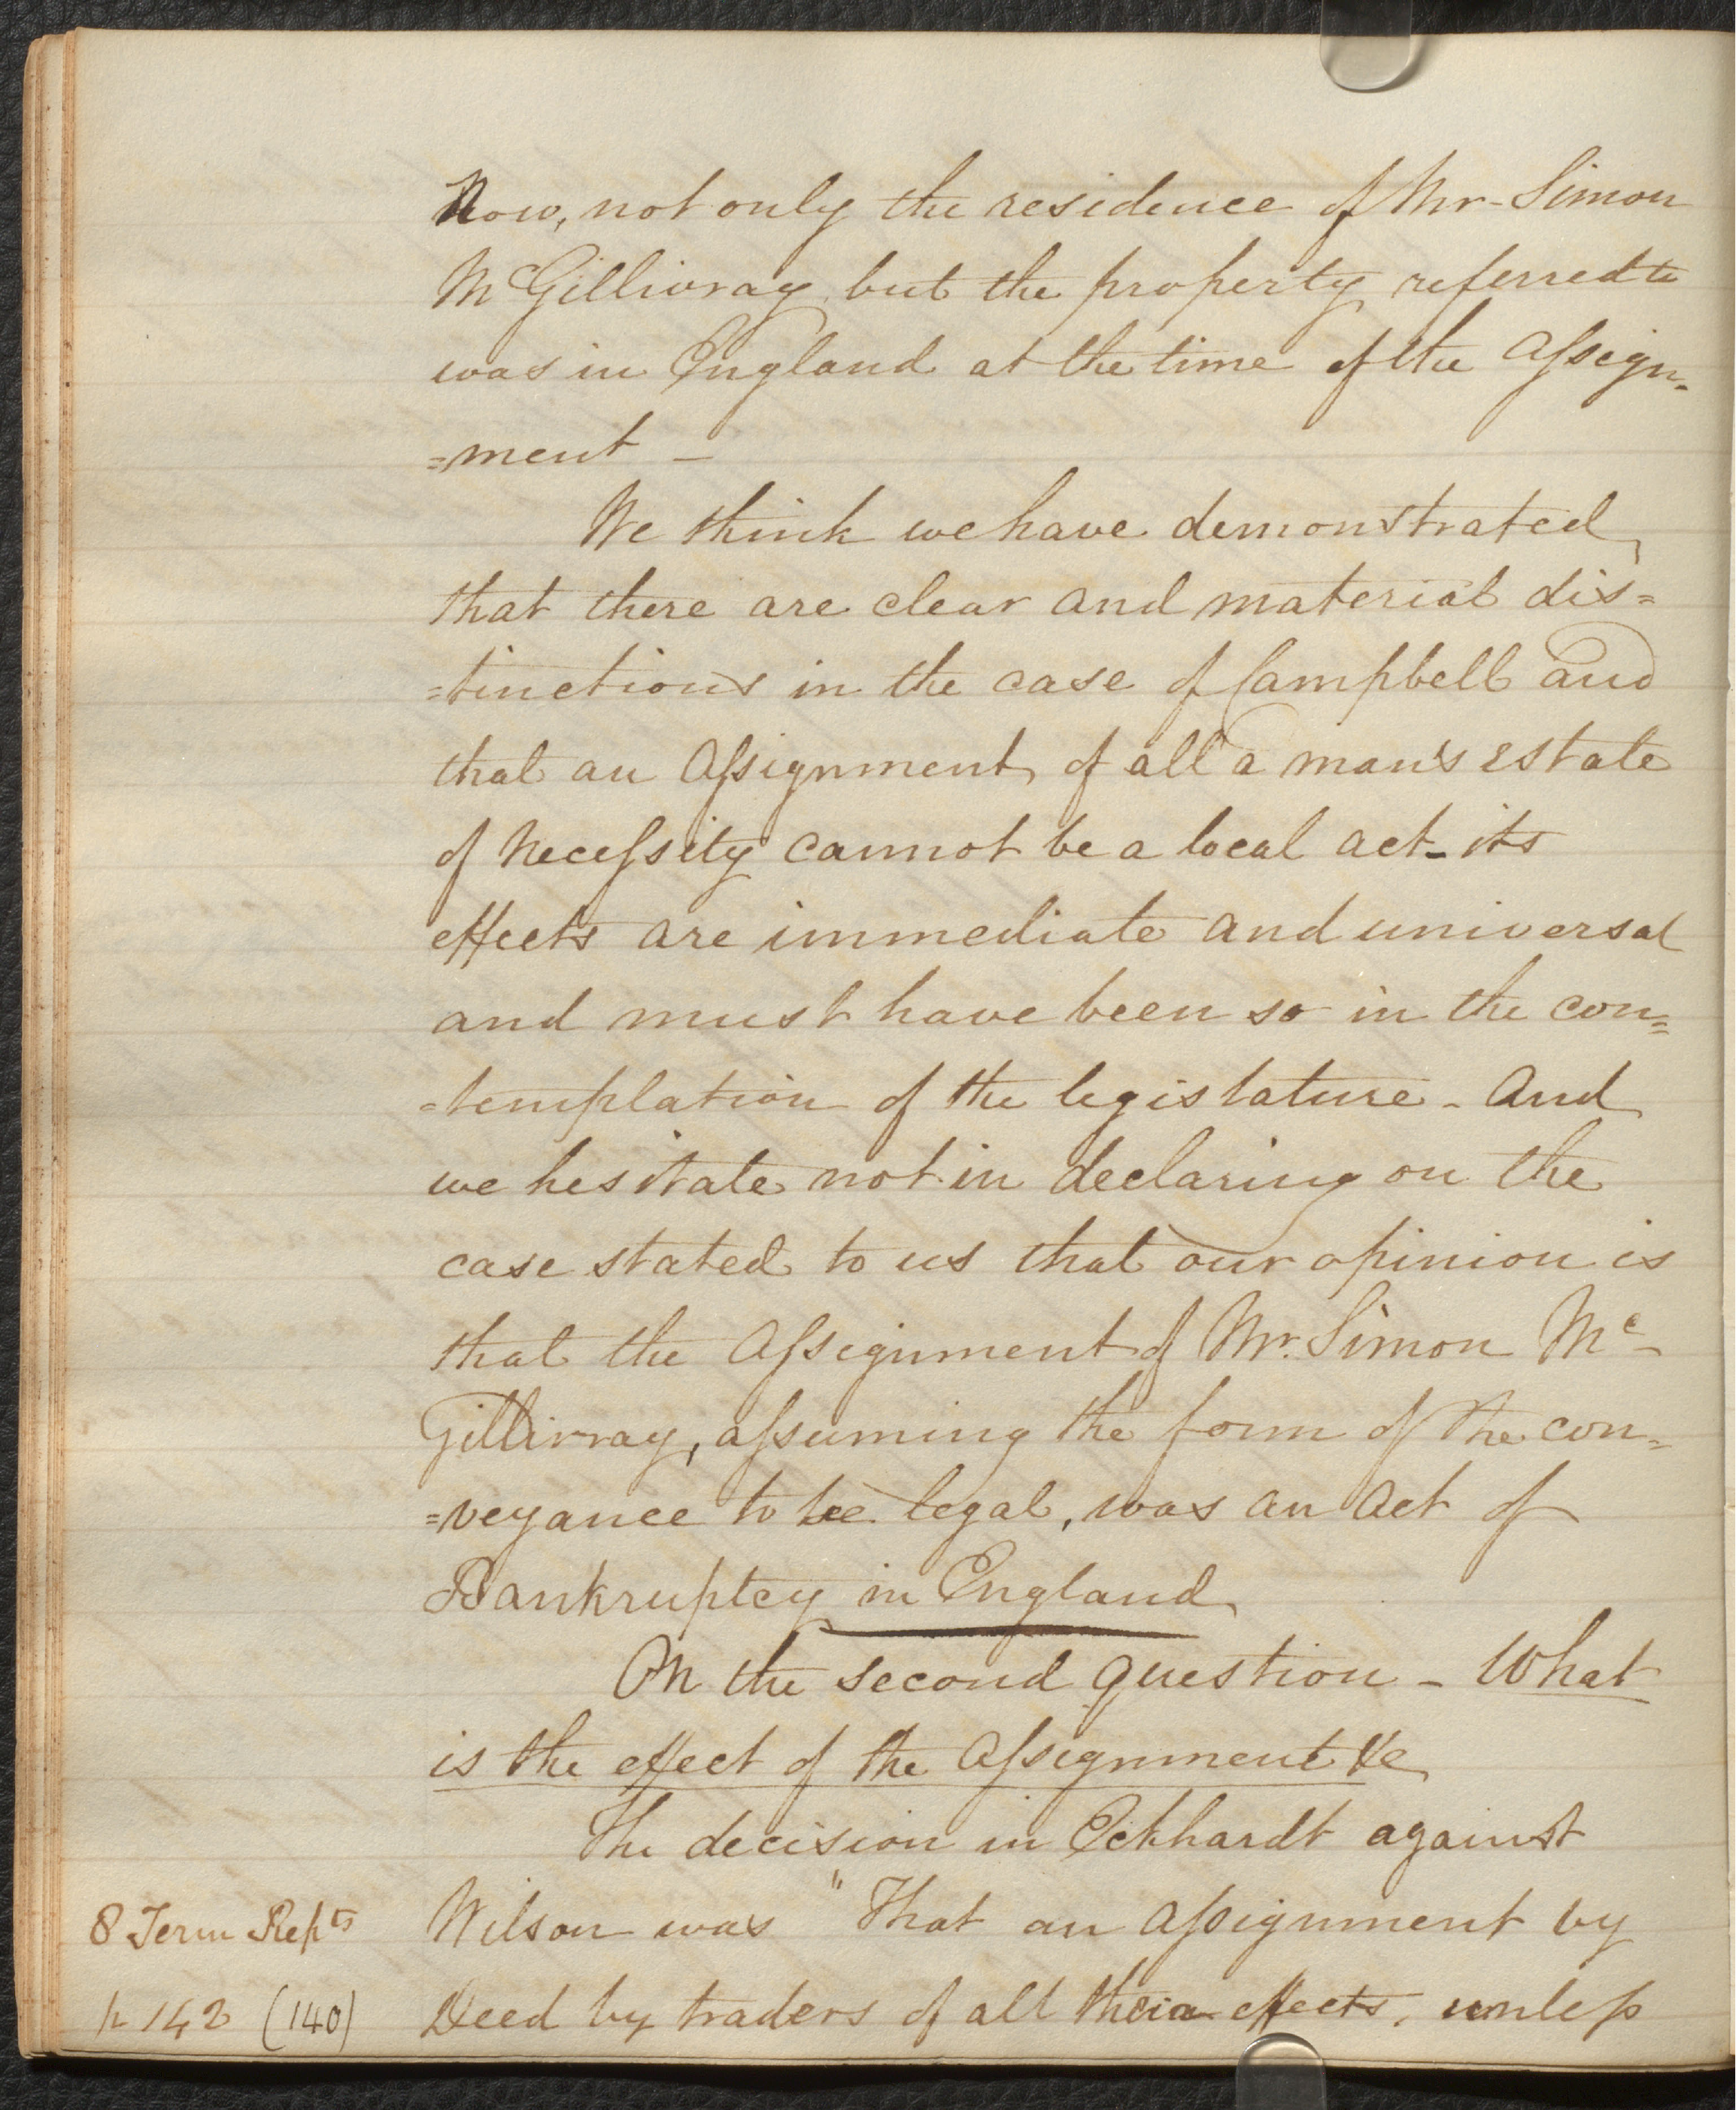 Now, not only the residence of Mr. Simon
McGillivray but the property referred to
was in England at the time of the Assign-
=ment -
We think we have demonstrated
that there are clear and material dis=
=tinctions in the case of Campbell and
that an Assignment of all a man's estate
of necessity cannot be a local act - its
effects are immediate and universal
and must have been so in the con=
=templation of the legislature - And
we hesitate not in declaring on the
case stated to us that our opinion is
that the Assignment of Mr. Simon Mc-
Gillivray, assuming the form of the con=
=veyance to be legal, was an Act of
Bankruptcy in England
On the second question - What
is the effect of the Assignment &c
The decision in Eckhardt against
8 Term Repts Wilson was "That an Assignment by
p 142 (140) Deed by traders of all their effects, unless